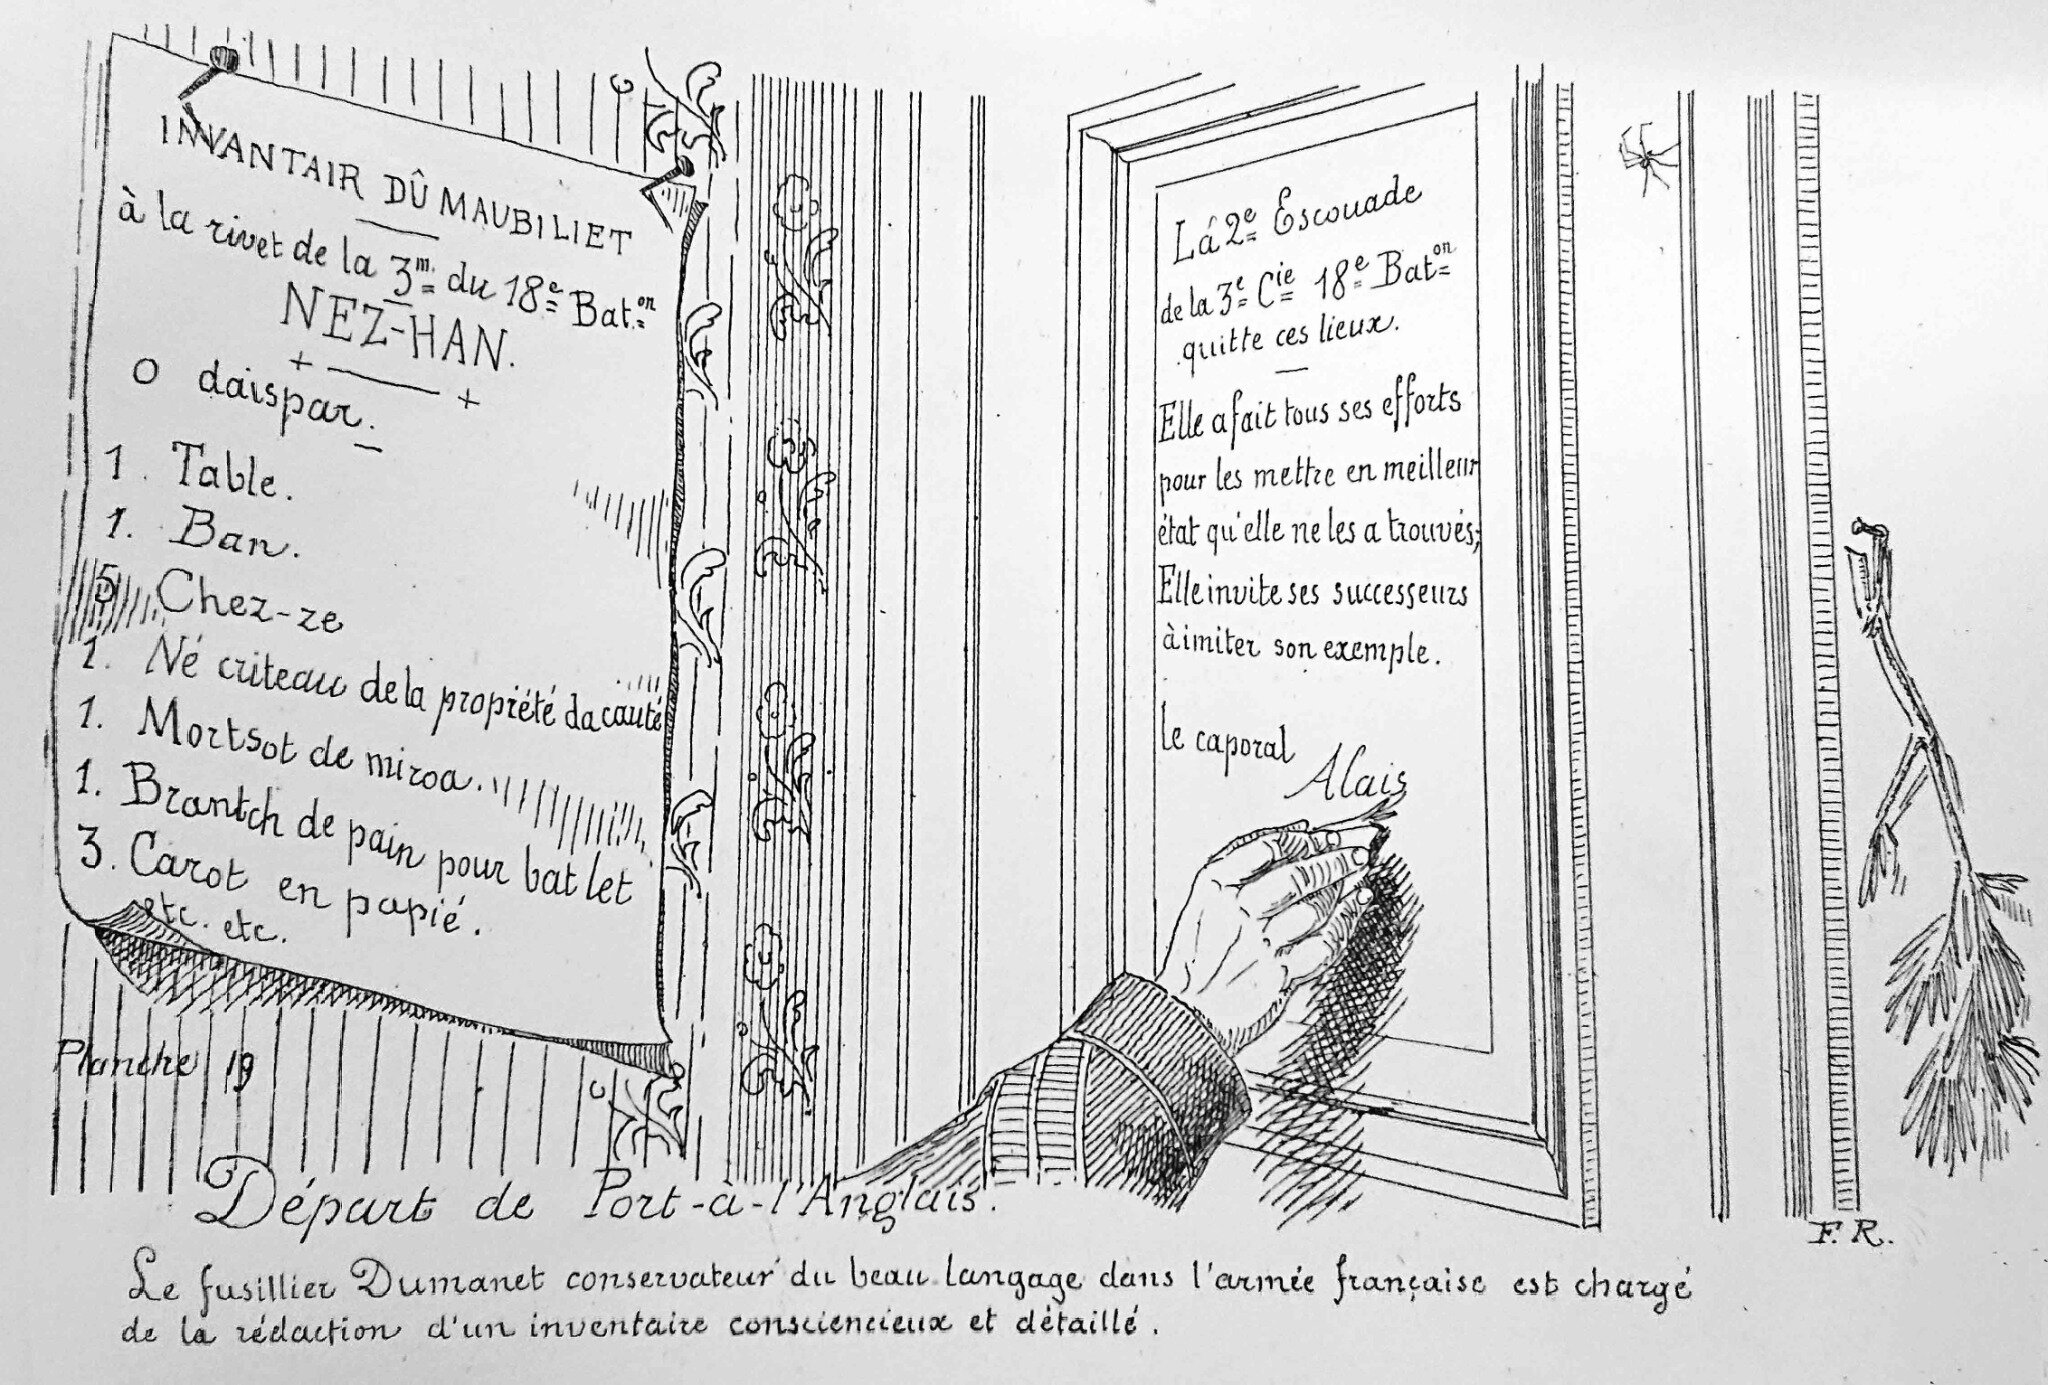 INVANTAIR DÛ MAUBILIET
à la rivet de la 3m. du 18e Bat.on
NEZ-HAN.
0 daispar.
1. Table.
1. Ban.
5 Chez-ze
1. Né criteau de la propriété da cauté
1. Mortsot de miroa.
1. Brantch de pain pour bat let
3. Carot en papié.
etc. etc.
Planche 19
Lá 2e Escouade
de la 3e Cie 18e Baton
quitte ces lieux.
Elle a fait tous ses efforts
pour les mettre en meilleur
état qu'elle ne les a trouvés;
Elle invite ses successeurs
à imiter son exemple.
le caporal
Alais
F. R.
Départ de Port-à-l'Anglais.
Le fusillier Dumanet conservateur du beau langage dans l'armée française est chargé
de la rédaction d'un inventaire consciencieux et détaillé.